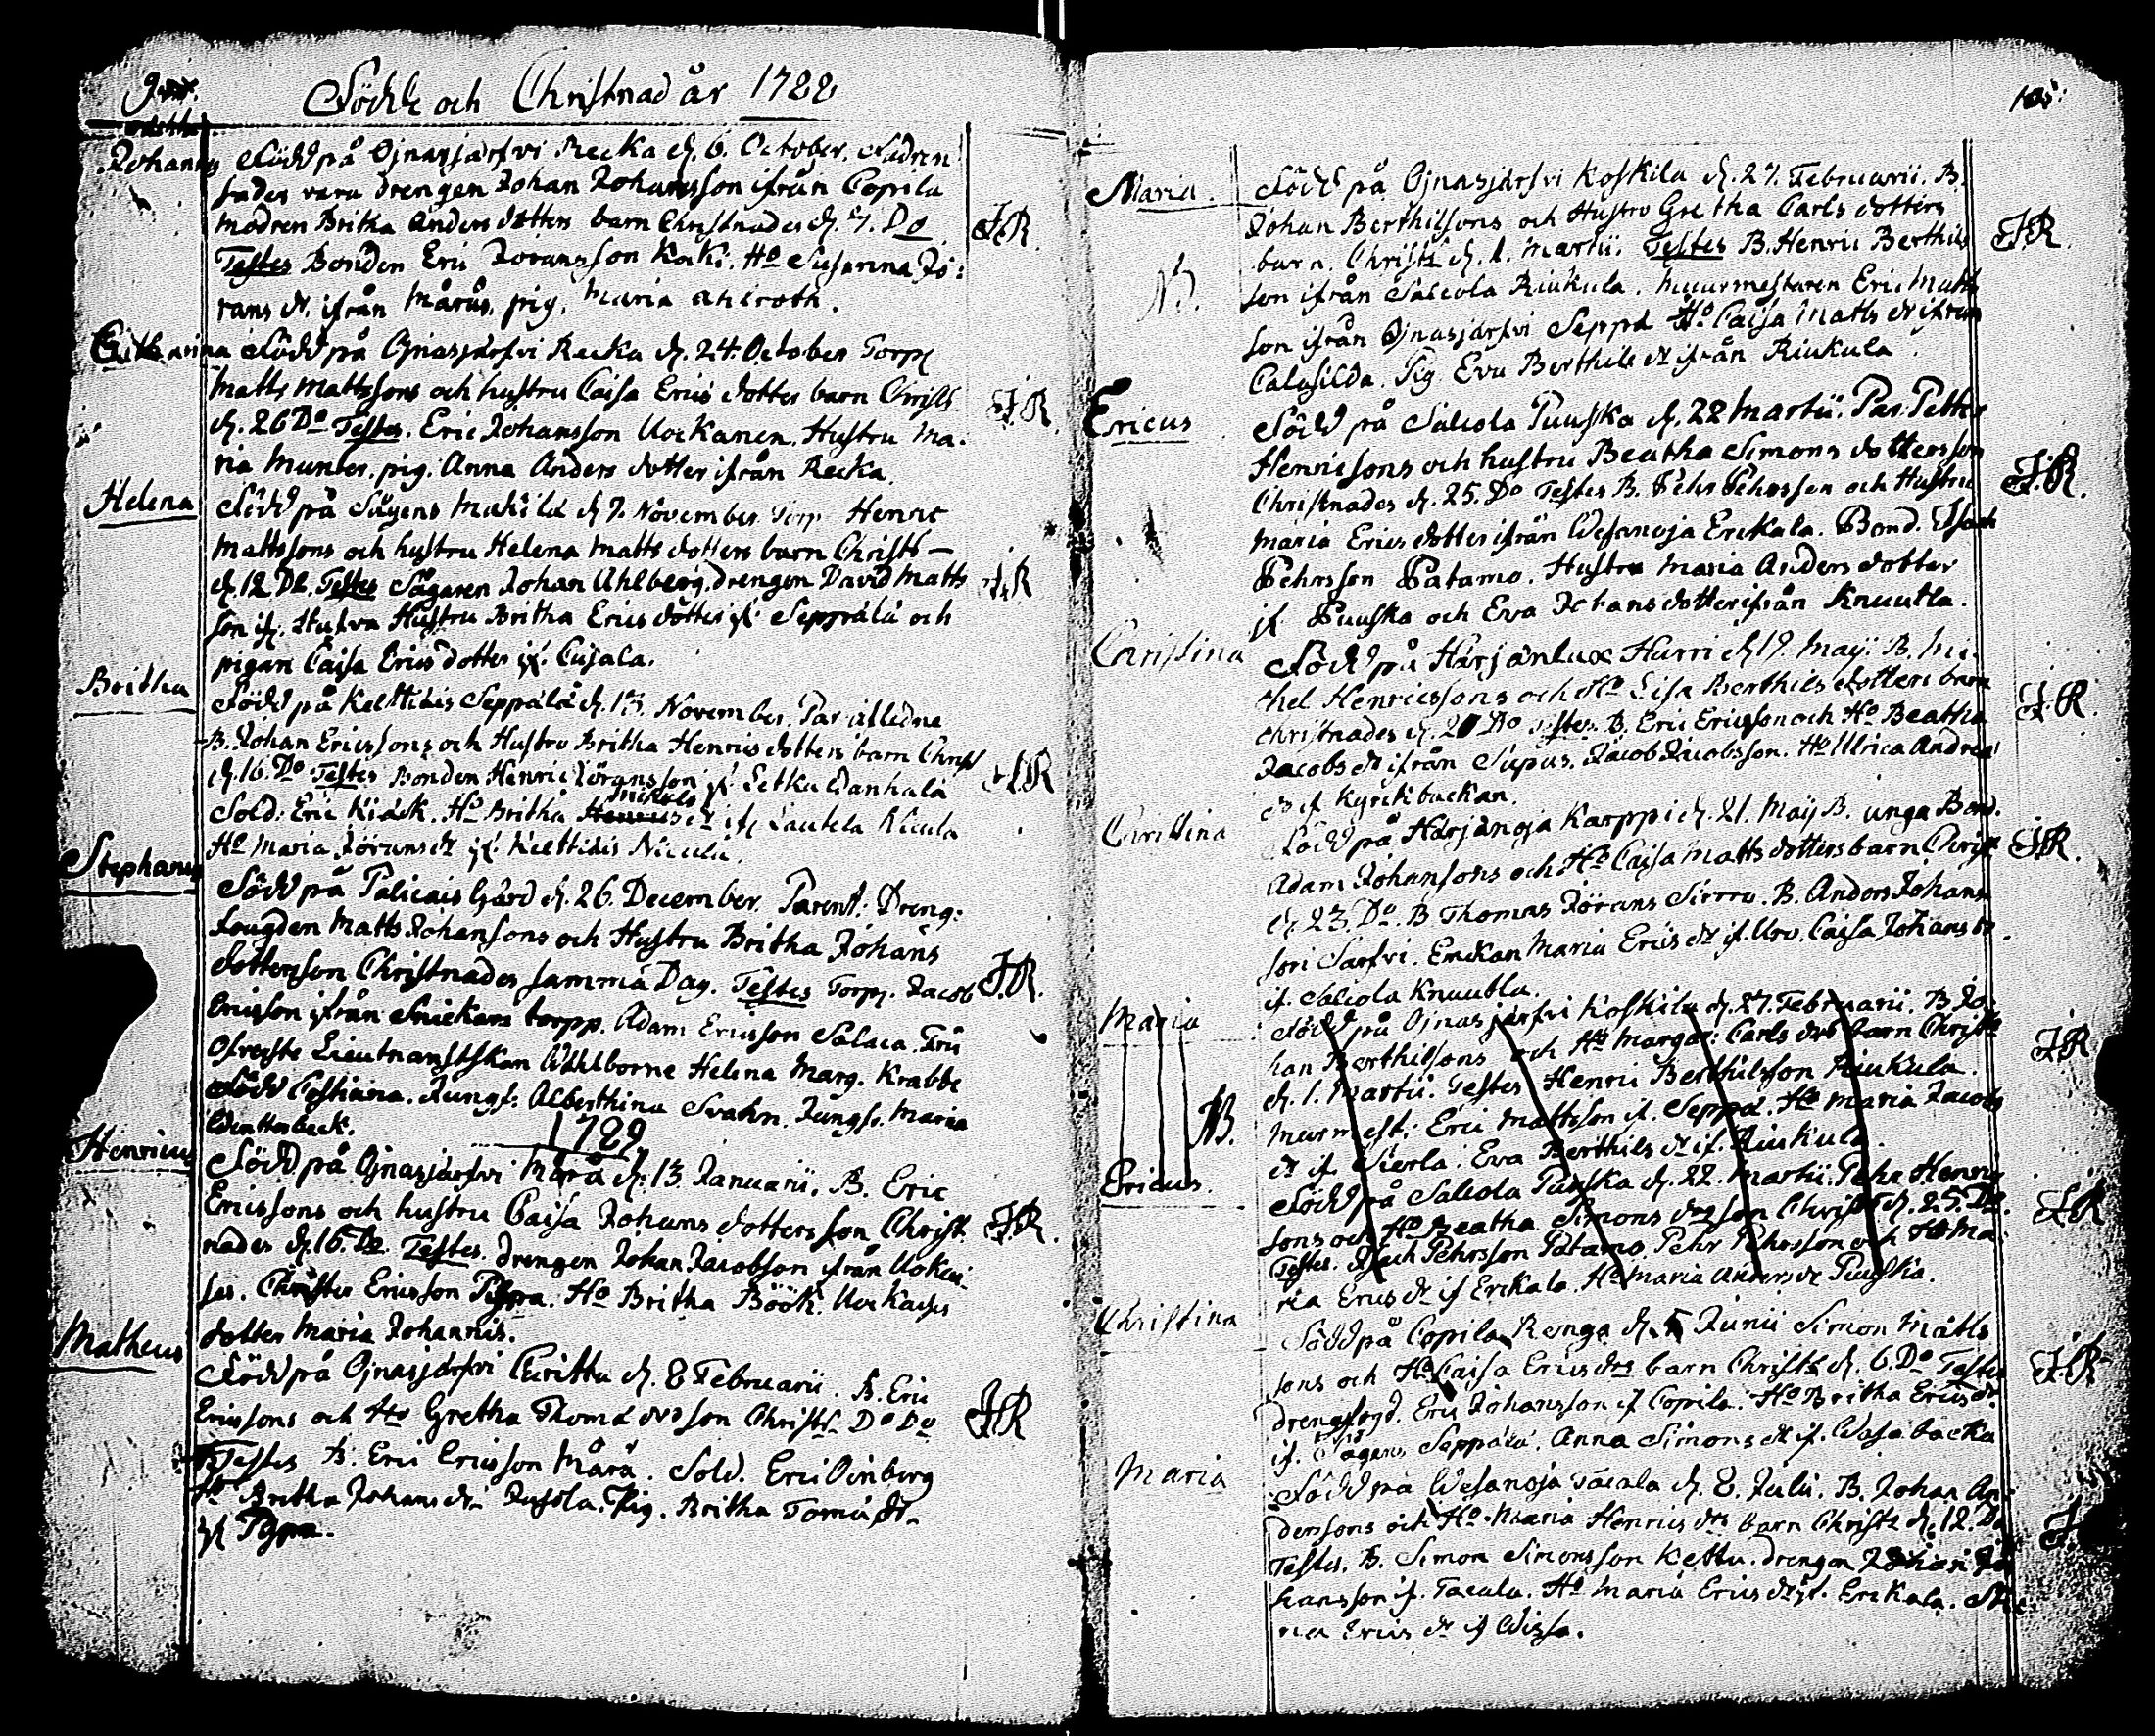 Födde och Christnad år 1788
Johannes Född på Ojnasjärfvi Recka d. 6. October. Fadren
sades vara drengen Johan Johansson ifrån Copila
modren Britha Anders dotters barn Christnades d. 7. Do
Testes Bonden Eric Joransson Koki. Ho Susanna Jö: J.R.
rans dr. ifrån Mårås, pig. Maria Ahlroth.
Catharina Född på Ojnasjärfvi Recka d. 24. October Torp
Matts Mattssons och hustru Caisa Erics dotter barn Christs J.R.
d. 26 Do Testes. Eric Johansson Uockanen. Hustru Ma-
ria Munter. pig. Anna Anders dotter ifrån Recka.
Helena Född på Sågens Mickilä d. 7. November Torp Henric
Mattssons och hustru Helena Matts dotters barn Christs
d. 12. Do. Testes Sågaren Johan Ahlberg. drengen David Matts J.R
son if. Hustru Britha Erics dotter if. Seppälä och
pigan Caisa Erics dotter if. Cusala.
Britha Född på Kelttiais Seppälä d. 13. November. Par.
B. Johan Ericssons och Hustru Britha Henrics dotters barn Christ
d. 16. Do Testes Bonden Henric Jöransson if. J.R
Sold: Eric Kiäck. Ho Britha Henrics dr if. Lautela Nicula
Ho Maria Jörans dr if. Kelttiais Nicula.
Stephanus Född på Palicais Gård d. 26. December. Parent: Dreng:
fougden Matts Johansons och Hustru Britha Johans
dotterson Christnades samma Dag. Testes Torp. Jacob J.R.
Ericsson ifrån Snickars torpp. Adam Ericsson Salaca. Fru
Ofverste Lieutnantskan Helena Marg. Krabbe
Född Jungf: Alberthina Svahn. Jungf. Maria
1789
Henricus Född på Ojnasjärfvi Mårå d. 13 Januarii. B. Eric
Ericssons och hustru Caisa Johans dotters son Christ J.R.
nades d. 16. Do. Testes. drengen Johan Jacobson ifrån Uockai-
ses. Christer Ericsson Ho Britha Böök.
dotter Maria Johannis.
Matheus Född på Ojnasjärfvi d. 8 Februarii. B. Eric
Ericssons och Ho Gretha Thomæ drs son Christs Do Do J.R
Testes B: Eric Ericsson Mårå. Sold. Eric
Ho Britha Johans dr Jusola. Pig. Britha Tomæ dr.
105.
Maria Född på Ojnasjärfvi Koskila d. 27. Februarii. B.
Johan Berthilsons och Hustru Gretha Carls dotters J.R.
barn. Christs d. 1. Martii. Testes B. Henric Berthils
NB. son ifrån Saleola Riukula. Muurmestaren Eric Matts
son ifrån Ojnasjärfvi Seppä Ho Caisa Matts dr ifrån
Pig Eva Berthils dr ifrån Riukula.
Ericus Född på Saleola Puuska d. 22 Martii. Par. Petter
Henricsons och hustru Beatha Simons dottersson J.R.
Christnades d. 25. Do Testes B. Pehr Pehrsson och Hustru
Maria Erics dotter ifrån Wesanoja Erckala. Bond. Isach
Pehrsson Patamo. Hustru Maria Anders dotter
if. Puuska och Eva Johans dotter ifrån Knuutla.
Christina Född på Harjanlax Hurri d. 19 Maij. B. Mi-
chel Henricssons och Ho Lisa Berthils dotters barn J.R.
Christnades d. 20 Do Testes. B. Eric Ericsson och Ho Beatha
Jacobs dr ifrån Supus. Jacob Jacobsson. Ho Ulrica Andreæ
dr if. Kyrckbackan.
Christina Född på Harjanoja Karppi d. 21. Maij B. unga Bond. J.R.
Adam Johansons och Ho Caisa Matts dotters barn Christ
d. 23. Do. B Thomas Jörans Sirro. B. Anders Johans
son Sarfvi. Enckan Maria Erics dr if. Uro. Caisa Johans dr
if. Saleola Knuutla.
Maria Född på Ojnasjärfvi Koskila d. 27. Februarii. B. Jo-
han Berthilsons och Ho Margar: Carls drs barn Christs J.R
d. 1. Martii. Testes Henric Berthilsson Riukula.
NB. Murmest: Eric Mattsson if. Seppä. Ho Maria Jacobs
dr if. Sierla. Eva Berthils dr if. Riukula.
Ericus. Född på Saleola Puuska d. 22. Martii. Pehr Henric
sons och Ho Beatha Simons drs son Christs d. 25. Do. J.R
Testes. Isach Pehrsson Patamo. Pehr Pehrsson och Ho Ma-
ria Erics dr if Erckala. Ho Maria Anders dr Puuska.
Christina Född på Copila Renga d. 5 Junii Simon Matts
sons och Ho Caisa Erics drs barn Christs d. 6. Do Testes J.R
drengfogd. Eric Johansson if Copila. Ho Britha Erics dr.
if. Sågens Seppälä. Anna Simons dr if. Wasa backa
Maria Född på Wesanoja Tacala d. 8. Julii. B. Johan An-
dersons och Ho Maria Henrics drs barn Christs d. 12. Do
Testes. B. Simon Simonsson Kettu. drengen Johan Jo-
hansson if. Tacala. Ho Maria Erics dr if. Erckala.
ria Erics dr if Wissa.